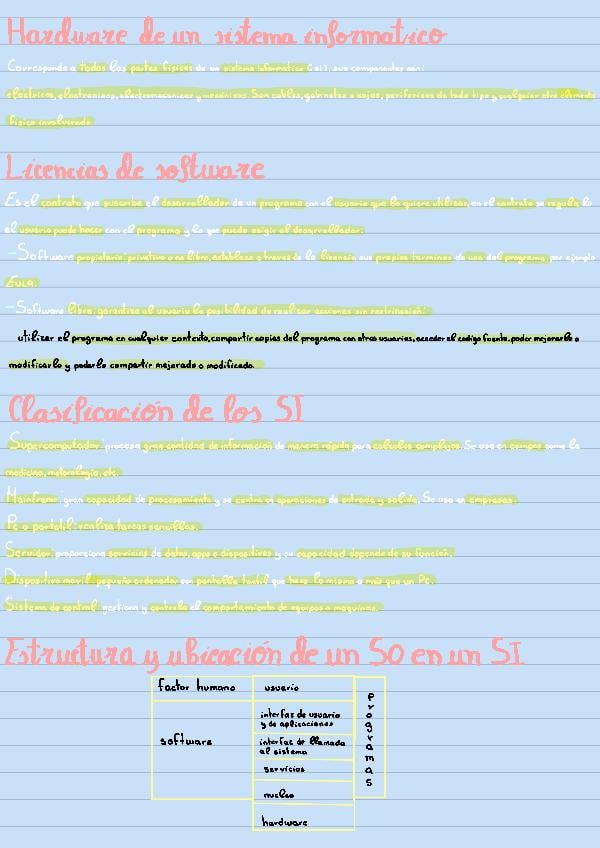 Hardware de un sistema informatico
Corresponde a todas las partes fisicas de un sistema informatico (si), sus componentes son:
electricos, electronicos, electromecanicos y mecánicos. Son cables, gabinetes o cajas, perifericos de todo tipo y cualquier otro elemento
fisico involucrado.
Licencias de software
Es el contrato que suscribe el desarrollador de un programa con el usuario que lo quiere utilizar, en el contrato se regula lo
el usuario puede hacer con el programa y lo que puede exigir al desarrollador.
-Software propietario, privativo o no libre, establece a traves de la licencia sus propios terminos de uso del programa, por ejemplo
EULA.
-Software libre: garantiza al usuario la posibilidad de realizar acciones sin restricción:
utilizar el programa en cualquier contexto, compartir copias del programa con otros usuarios, acceder al codigo fuente, poder mejorarlo o
modificarlo y poderlo compartir mejorado o modificado.
Clasificación de los SI
Supercomputador: procesa gran cantidad de informacion de manera rápida para calculos complejos. Se usa en campos como la
medicina, meteorologia, etc.
Mainframe: gran capacidad de procesamiento y se centra en operaciones de entrada y salida. Se usa en empresas.
Pc o portatil: realiza tareas sencillas.
Servidor: proporciona servicios de datos, apps o dispositivos y su capacidad depende de su función.
Dispositivo movil: pequeño ordenador con pantalla tactil que hace lo mismo o más que un Pc.
Sistema de control: gestiona y controla el comportamiento de equipos o maquinas.
Estructura y ubicación de un SO en un SI
factor humano
usuario
programas
software
interfaz de usuario
y de aplicaciones
interfaz de llamada
al sistema
servicios
nucleo
hardware